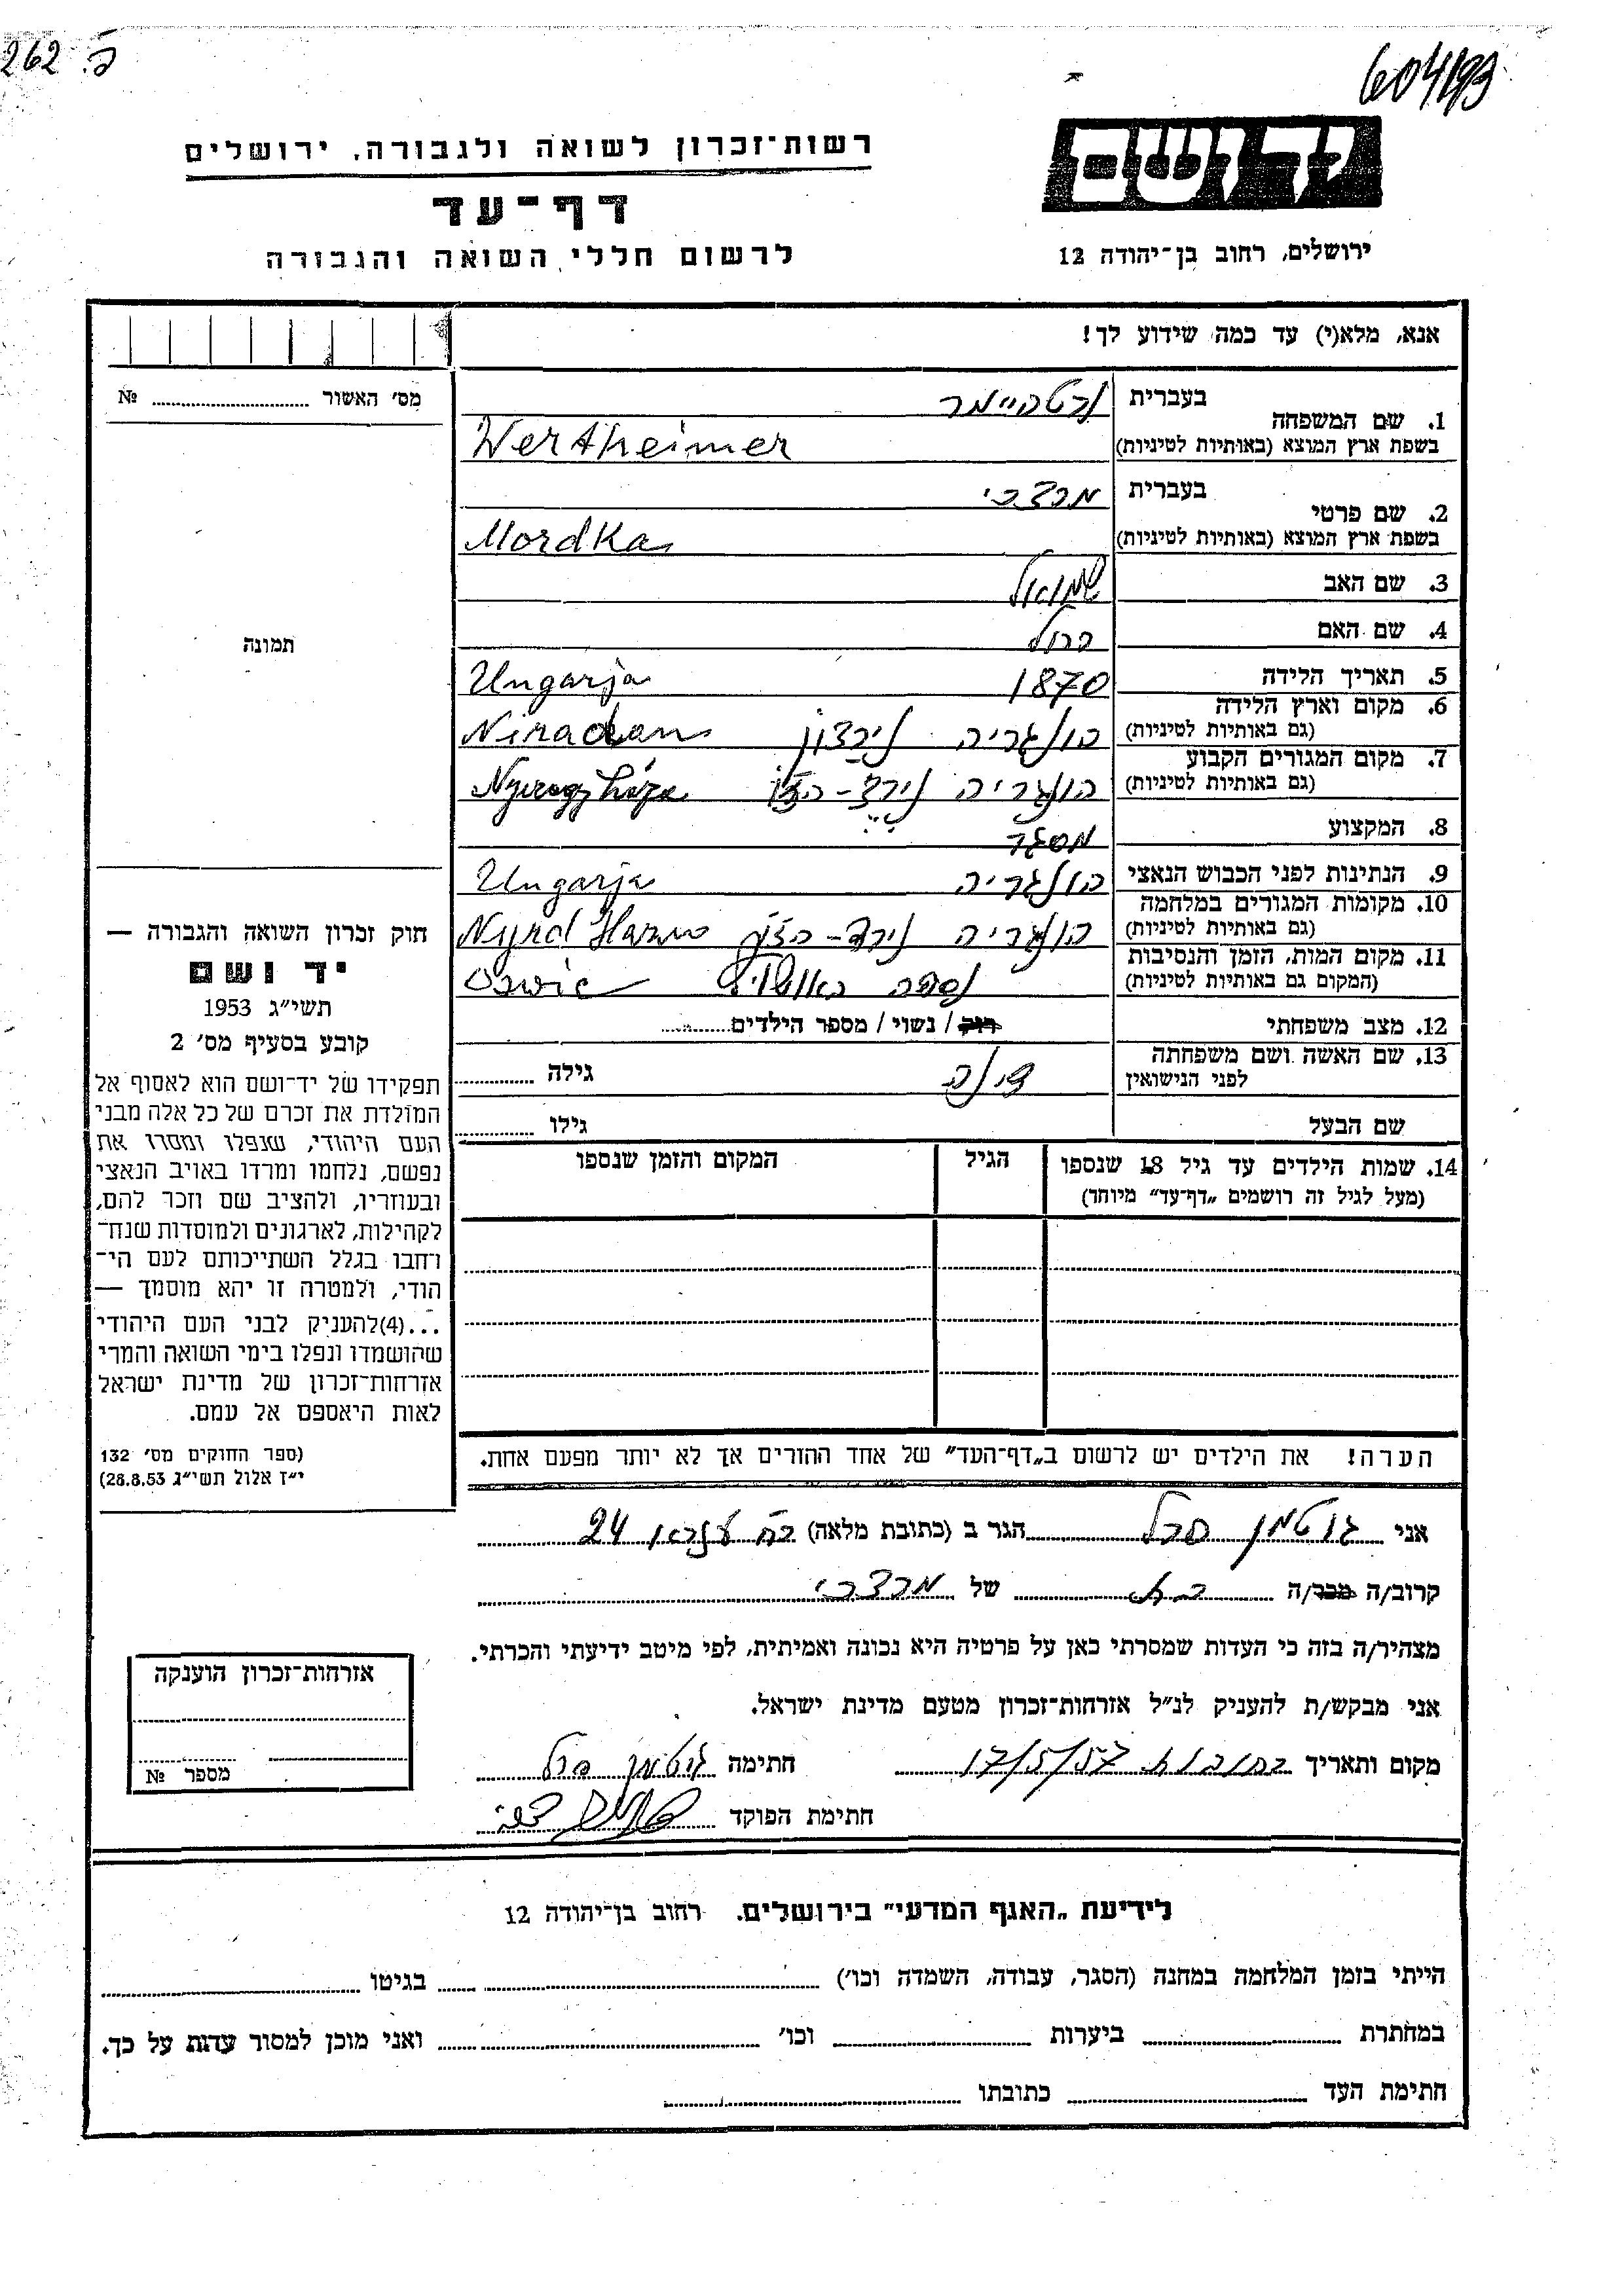 262 ב.
604193
יד ושם
רשות־זכרון לשואה ולגבורה, ירושלים
דף־עד
לרשום חללי השואה והגבורה
ירושלים, רחוב בן־יהודה 12
אנא, מלא(י) עד כמה שידוע לך!
מס' האשור № 
תמונה
1. שם המשפחה בעברית ורטהיימר
בשפת ארץ המוצא (באותיות לטיניות) Wertheimer
2. שם פרטי בעברית מרדכי
בשפת ארץ המוצא (באותיות לטיניות) Mordka
3. שם האב שמואל
4. שם האם
5. תאריך הלידה 1870 Ungarja
6. מקום וארץ הלידה
(גם באותיות לטיניות) הונגריה
7. מקום המגורים הקבוע
(גם באותיות לטיניות) הונגריה
8. המקצוע מסגר
9. הנתינות לפני הכבוש הנאצי הונגריה Ungarja
10. מקומות המגורים במלחמה
(גם באותיות לטיניות) הונגריה
11. מקום המות, הזמן והנסיבות
(המקום גם באותיות לטיניות) נספה
12. מצב משפחתי רוק / נשוי / מספר הילדים
13. שם האשה ושם משפחתה
לפני הנישואין גילה
שם הבעל גילו
14. שמות הילדים עד גיל 18 שנספו הגיל המקום והזמן שנספו
(מעל לגיל זה רושמים „דף־עד" מיוחד)
הערה! את הילדים יש לרשום ב„דף־העד" של אחד ההורים אך לא יותר מפעם אחת.
חוק זכרון השואה והגבורה —
יד ושם
תשי"ג 1953
קובע בסעיף מס' 2
תפקידו של יד־ושם הוא לאסוף אל
המולדת את זכרם של כל אלה מבני
העם היהודי, שנפלו ומסרו את
נפשם, נלחמו ומרדו באויב הנאצי
ובעוזריו, ולהציב שם וזכר להם,
לקהילות, לארגונים ולמוסדות שנח־
רחבו בגלל השתייכותם לעם הי־
הודי, ולמטרה זו יהא מוסמך —
...(4)להעניק לבני העם היהודי
שהושמדו ונפלו בימי השואה והמרי
אזרחות־זכרון של מדינת ישראל
לאות היאספם אל עמם.
(ספר החוקים מס' 132
י"ז אלול תשי"ג 28.8.53)
אני גוטמן הגר ב (כתובת מלאה) 24
קרוב/ה מכר/ה בת של מרדכי
מצהיר/ה בזה כי העדות שמסרתי כאן על פרטיה היא נכונה ואמיתית, לפי מיטב ידיעתי והכרתי.
אני מבקש/ת להעניק לנ"ל אזרחות־זכרון מטעם מדינת ישראל.
מקום ותאריך רחובות 17/5/57 חתימה גוטמן
חתימת הפוקד
אזרחות־זכרון הוענקה
מספר №
לידיעת „האגף המדעי" בירושלים. רחוב בן־יהודה 12
הייתי בזמן המלחמה במחנה (הסגר, עבודה, השמדה וכו') בגיטו
במחתרת ביערות וכו' ואני מוכן למסור עדות על כך.
חתימת העד כתובתו